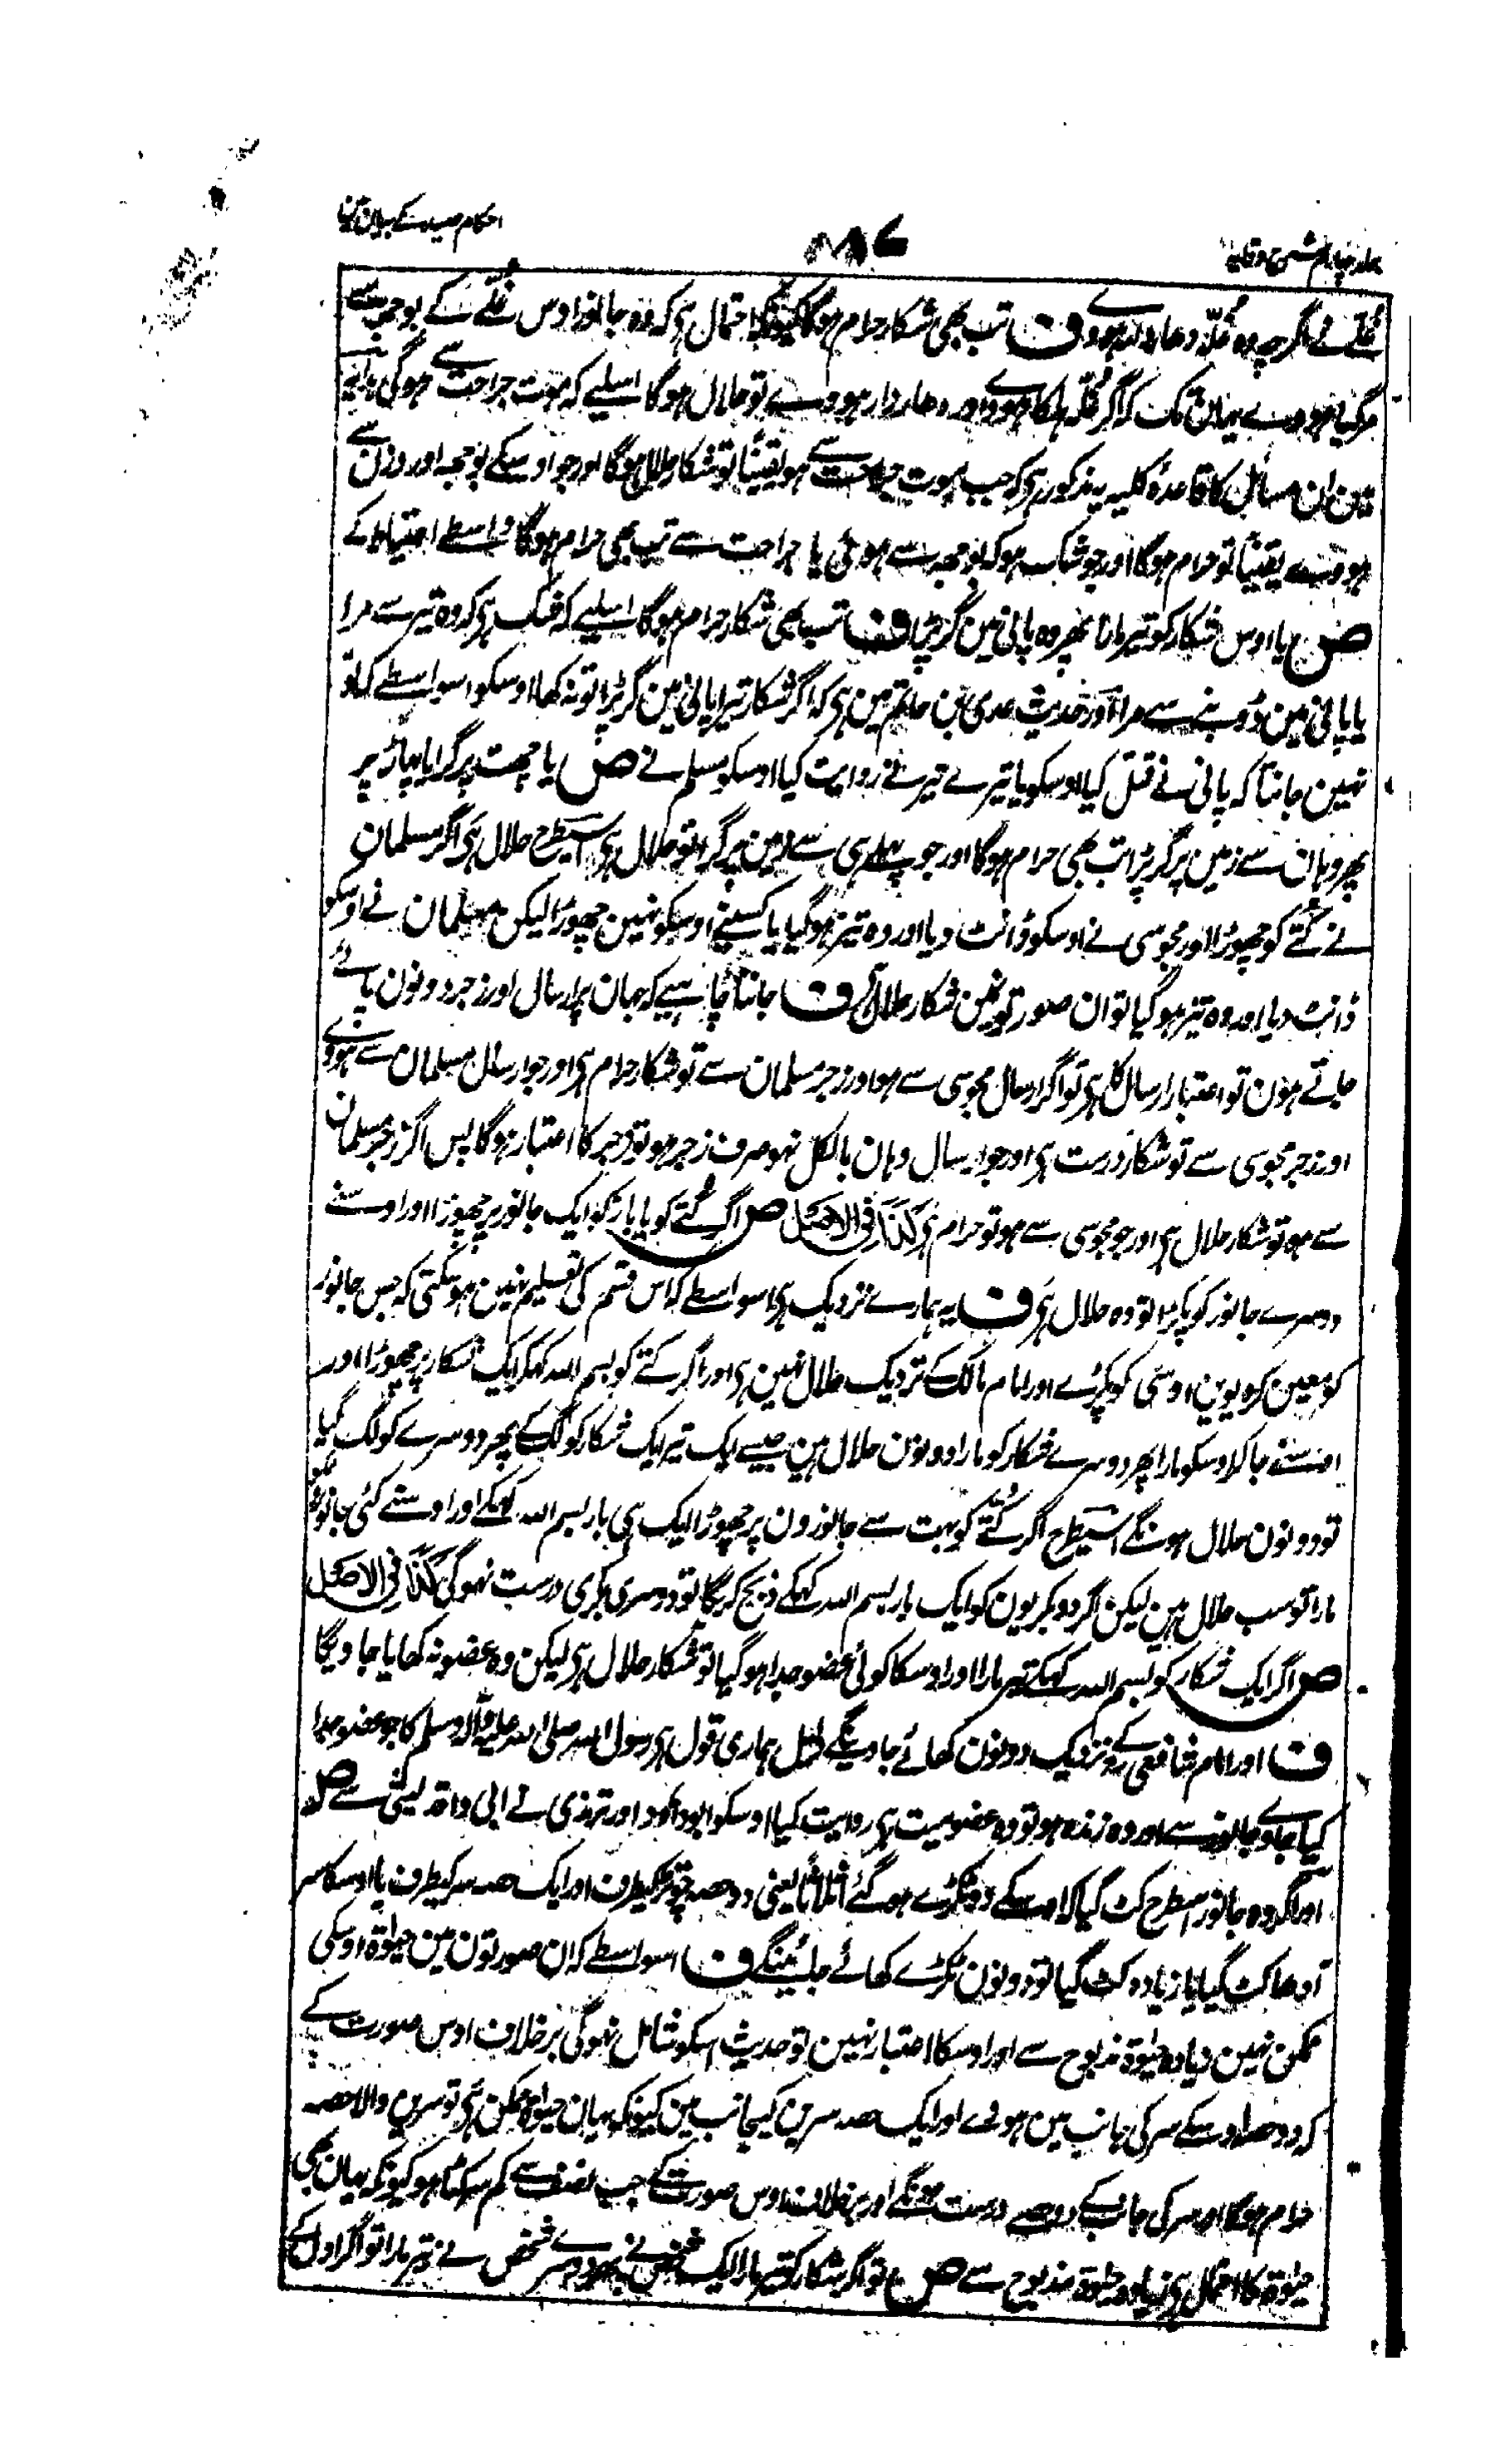 جلد چہارم شرح وقایہ
احکام صید کے بیان مین
غلّے نے اگرچہ وہ غُلّہ دھاردار ہووے ف تب بھی شکار حرام ہوگا کیونکہ احتمال ہی کہ وہ جانور اوس غُلّے کے بوجھ سے
مرگیا ہووے یہان تک کہ اگر غُلّہ ہلکا ہووے اور دھاردار ہووے تو حلال ہوگا اسلیے کہ موت جراحت سے ہوگی ہدایہ
مین ان مسائل کا قاعدۂ کلیہ یہ مذکور ہی کہ جب موت جراحت سے ہو یقیناً تو شکار حلال ہوگا اور جو اوسکے بوجھ اور وزن سے
ہووے یقیناً تو حرام ہوگا اور جو شک ہو کہ بوجھ سے ہوئی یا جراحت سے تب بھی حرام ہوگا واسطے احتیاط کے
ص یا اوس شکار کو تیر مارا پھر وہ پانی مین گر پڑا ف تب بھی شکار حرام ہوگا اسلیے کہ شک ہی کہ وہ تیر سے مرا
یا پانی مین ڈوبنے سے مرا اور حدیث عدی بن حاتم مین ہی کہ اگر شکار تیرا پانی مین گر پڑا تو نہ کھا اوسکو اسواسطے کہ تو
نہین جانتا کہ پانی نے قتل کیا اوسکو یا تیرے تیر نے روایت کیا اوسکو مسلم نے ص یا چھت پر گرا یا پہاڑ پر
پھر وہان سے زمین پر گر پڑا تب بھی حرام ہوگا اور جو پہلے ہی سے زمین پر گرا تو حلال ہی اسیطرح حلال ہی اگر مسلمان
نے کُتّے کو چھوڑا اور مجوسی نے اوسکو ڈانٹ دیا اور وہ تیز ہوگیا یا کسینے اوسکو نہین چھوڑا لیکن مسلمان نے اوسکو
ڈانٹ دیا اور وہ تیز ہوگیا تو ان صورتونمین شکار حلال ہی ف جاننا چاہیے کہ جہان پر ارسال اور زجر دونون پائے
جاتے ہون تو اعتبار ارسال کا ہی تو اگر ارسال مجوسی سے ہو اور زجر مسلمان سے تو شکار حرام ہی اور جو ارسال مسلمان سے ہووے
اور زجر مجوسی سے تو شکار درست ہی اور جو ارسال وہان بالکل نہو صرف زجر ہو تو زجر کا اعتبار ہوگا پس اگر زجر مسلمان
سے ہو تو شکار حلال ہی اور جو مجوسی سے ہو تو حرام ہی کَذَا فِی الاَصل ص اگر کُتّے کو یا باز کو ایک جانور پر چھوڑا اور اوسنے
دوسرے جانور کو پکڑا تو وہ حلال ہی ف یہ ہمارے نزدیک ہی اسواسطے کہ اس قسم کی تعلیم نہین ہوسکتی کہ جس جانور
کو معین کرد یوین اوسی کو پکڑے اور امام مالک کے نزدیک حلال نہین ہی اور اگر کتے کو بسم اللہ کہکر ایک شکار پر چھوڑا اور
اوسنے جاکر اوسکو مارا پھر دوسرے شکار کو مارا دونون حلال ہین جیسے ایک تیر ایک شکار کو لگ کے پھر دوسرے کو لگ گیا
تو دونون حلال ہونگے اسیطرح اگر کُتّے کو بہت سے جانورون پر چھوڑا ایک ہی بار بسم اللہ کہکے اور اوسنے کئی جانورونکو
مارا تو سب حلال ہین لیکن اگر دو بکریون کو ایک بار بسم اللہ کہکے ذبح کریگا تو دوسری بکری درست نہوگی کَذَا فِی الاَصل
ص اگر ایک شکار کو بسم اللہ کہکے تیر مارا اور اوسکا کوئی عضو جدا ہوگیا تو شکار حلال ہی لیکن وہ عضو نہ کھایا جاویگا
ف اور امام شافعی رح کے نزدیک دونون کھائے جاوینگے دلیل ہماری قول ہی رسول اللہ صلی اللہ علیہ وآلہ وسلم کا جو عضو جدا
کیا جاوے جانور سے اور وہ زندہ ہو تو وہ عضو میت ہی روایت کیا اوسکو ابوداؤد اور ترمذی نے ابی واقد لیثی سے ص
اور اگر وہ جانور اسطرح کٹ گیا کہ اوسکے دو ٹکڑے ہوگئے اثلاثاً یعنی دو حصہ چوتڑ کیطرف اور ایک حصہ سر کیطرف یا اوسکا سر
آدھا کٹ گیا یا زیادہ کٹ گیا تو دونون ٹکڑے کھائے جاینگے ف اسواسطے کہ ان صورتون مین حیوٰۃ اوسکی
ممکن نہین زیادہ حیوٰۃ مذبوح سے اور اوسکا اعتبار نہین تو حدیث اسکو شامل نہوگی برخلاف اوس صورت کے
کہ دو حصہ اوسکے سر کی جانب مین ہووے اور ایک حصہ سرین کیجانب مین کیونکہ یہان حیوٰۃ ممکن ہی تو سرین والا حصہ
حرام ہوگا اور سر کی جانب کے دو حصے درست ہونگے اور برخلاف اوس صورت کے جب نصف سے کم سر کٹا ہو کیونکہ یہان بھی
حیوٰۃ کا احتمال ہی زیادہ حیوٰۃ مذبوح سے ص تو اگر شکار کو تیر مارا ایک شخص نے پھر دوسرے شخص نے تیر مارا تو اگر اول کے